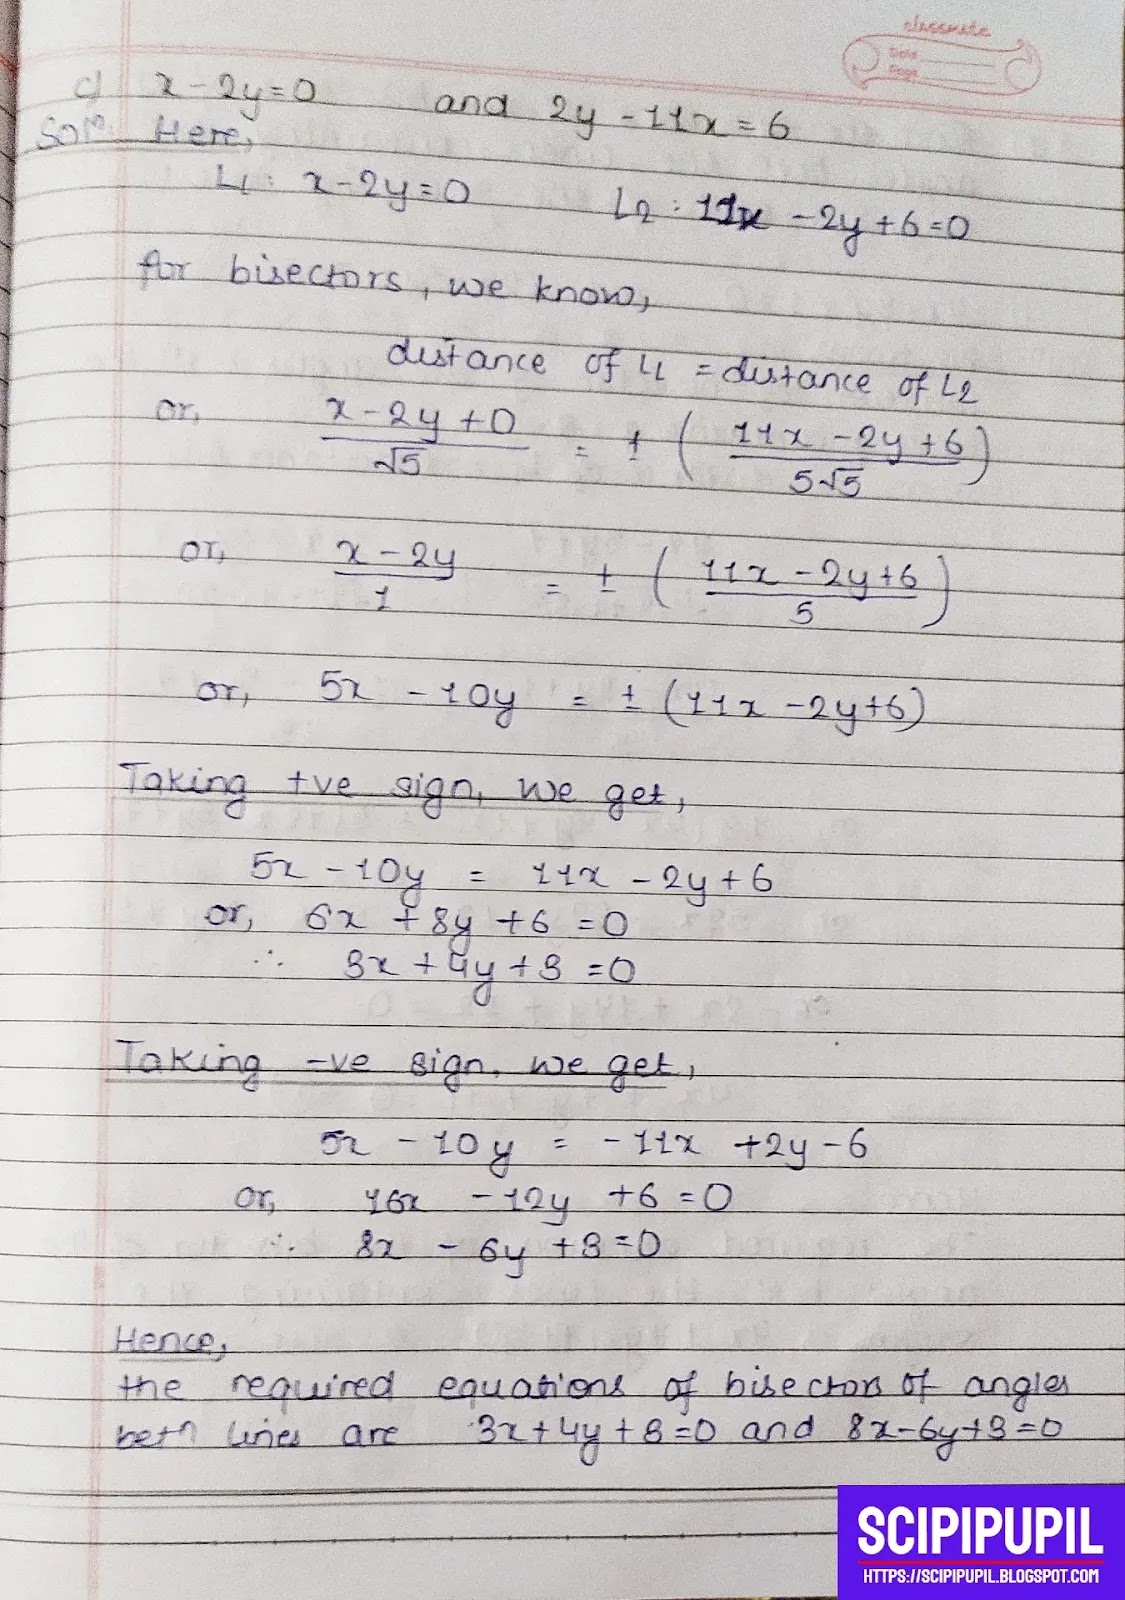 classmate
Date
Page
c) x - 2y = 0 and 2y - 11x = 6
Solⁿ. Here,
L1 : x - 2y = 0 L2 : 11x - 2y + 6 = 0
for bisectors, we know,
distance of L1 = distance of L2
or, (x - 2y + 0)/√5 = ± ((11x - 2y + 6)/5√5)
or, (x - 2y)/1 = ± ((11x - 2y + 6)/5)
or, 5x - 10y = ± (11x - 2y + 6)
Taking +ve sign, we get,
5x - 10y = 11x - 2y + 6
or, 6x + 8y + 6 = 0
∴ 3x + 4y + 3 = 0
Taking -ve sign, we get,
5x - 10y = -11x + 2y - 6
or, 16x - 12y + 6 = 0
∴ 8x - 6y + 3 = 0
Hence,
the required equations of bisectors of angles
betⁿ lines are 3x + 4y + 3 = 0 and 8x - 6y + 3 = 0
SCIPIPUPIL
HTTPS://SCIPIPUPIL.BLOGSPOT.COM